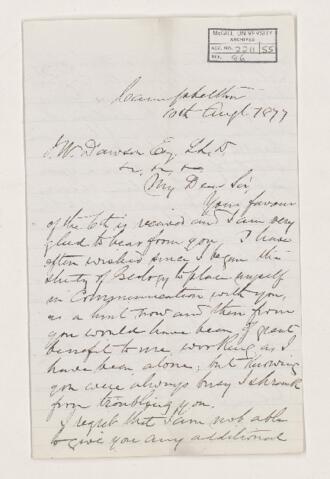 McGILL UNIVERSITY
ARCHIVES
ACC. NO. 2211/55
REF. 86
Campbellton
10th Augt. 1877
J. W. Dawson Esq. LL.D
&c, &c, &c
My Dear Sir,
Your favour
of the 6th is received and I am very
glad to hear from you. I have
often wished since I began the
study of Geology to place myself
in Communication with you,
as a hint now and then from
you would have been of great
benefit to me, working as I
have been, alone; but knowing
you were always busy I shrank
from troubling you.
I regret that I am not able
to give you any additional